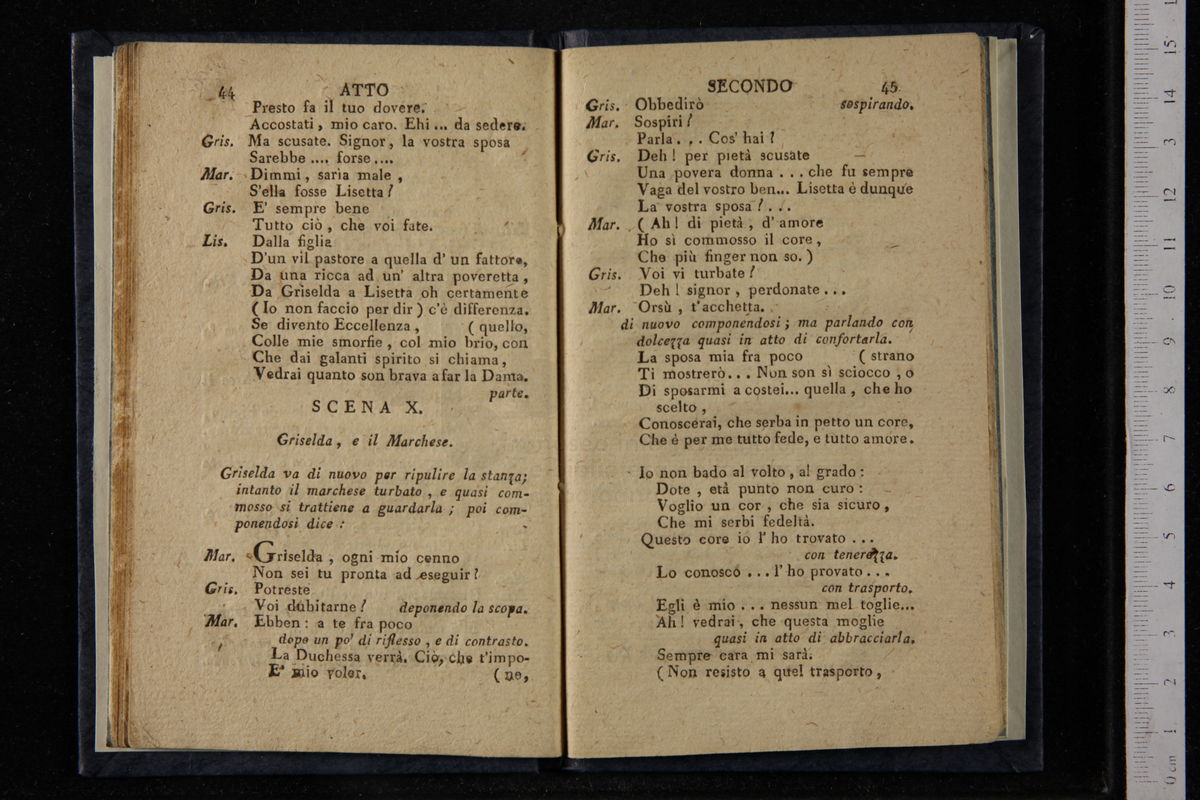 44 ATTO
Presto fa il tuo dovere.
Accostati, mio caro. Ehi ... da sedere.
Gris. Ma scusate. Signor, la vostra sposa
Sarebbe .... forse ....
Mar. Dimmi, saria male,
S'ella fosse Lisetta?
Gris. E' sempre bene
Tutto ciò, che voi fate.
Lis. Dalla figlia
D'un vil pastore a quella d' un fattore,
Da una ricca ad un' altra poveretta,
Da Griselda a Lisetta oh certamente
( Io non faccio per dir ) c'è differenza.
Se divento Eccellenza, ( quello,
Colle mie smorfie, col mio brio, con
Che dai galanti spirito si chiama,
Vedrai quanto son brava a far la Dama.
parte.
SCENA X.
Griselda, e il Marchese.
Griselda va di nuovo per ripulire la stanza;
intanto il marchese turbato, e quasi com-
mosso si trattiene a guardarla; poi com-
ponendosi dice:
Mar. Griselda, ogni mio cenno
Non sei tu pronta ad eseguir?
Gris. Potreste
Voi dubitarne? deponendo la scopa.
Mar. Ebben: a te fra poco
dopo un po' di riflesso, e di contrasto.
La Duchessa verrà. Ciò, che t'impo-
E' mio voler. ( ne,
SECONDO 45
Gris. Obbedirò sospirando.
Mar. Sospiri?
Parla. . . Cos' hai?
Gris. Deh! per pietà scusate
Una povera donna . . . che fu sempre
Vaga del vostro ben... Lisetta è dunque
La vostra sposa? . . .
Mar. ( Ah! di pietà, d' amore
Ho sì commosso il core,
Che più finger non so. )
Gris. Voi vi turbate?
Deh! signor, perdonate . . .
Mar. Orsù, t'acchetta.
di nuovo componendosi; ma parlando con
dolcezza quasi in atto di confortarla.
La sposa mia fra poco ( strano
Ti mostrerò. . . Non son sì sciocco, o
Di sposarmi a costei... quella, che ho
scelto,
Conoscerai, che serba in petto un core,
Che è per me tutto fede, e tutto amore.
Io non bado al volto, al grado:
Dote, età punto non curo:
Voglio un cor, che sia sicuro,
Che mi serbi fedeltà.
Questo core io l' ho trovato . . .
con tenerezza.
Lo conosco . . . l' ho provato . . .
con trasporto.
Egli è mio . . . nessun mel toglie...
Ah! vedrai, che questa moglie
quasi in atto di abbracciarla.
Sempre cara mi sarà.
( Non resisto a quel trasporto,
0 cm 1 2 3 4 5 6 7 8 9 10 11 12 13 14 15